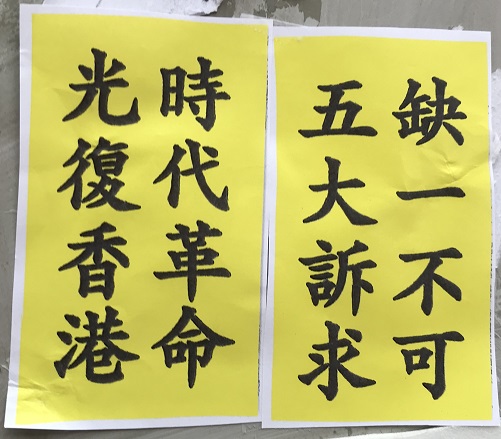 光復香港
時代革命
五大訴求
缺一不可